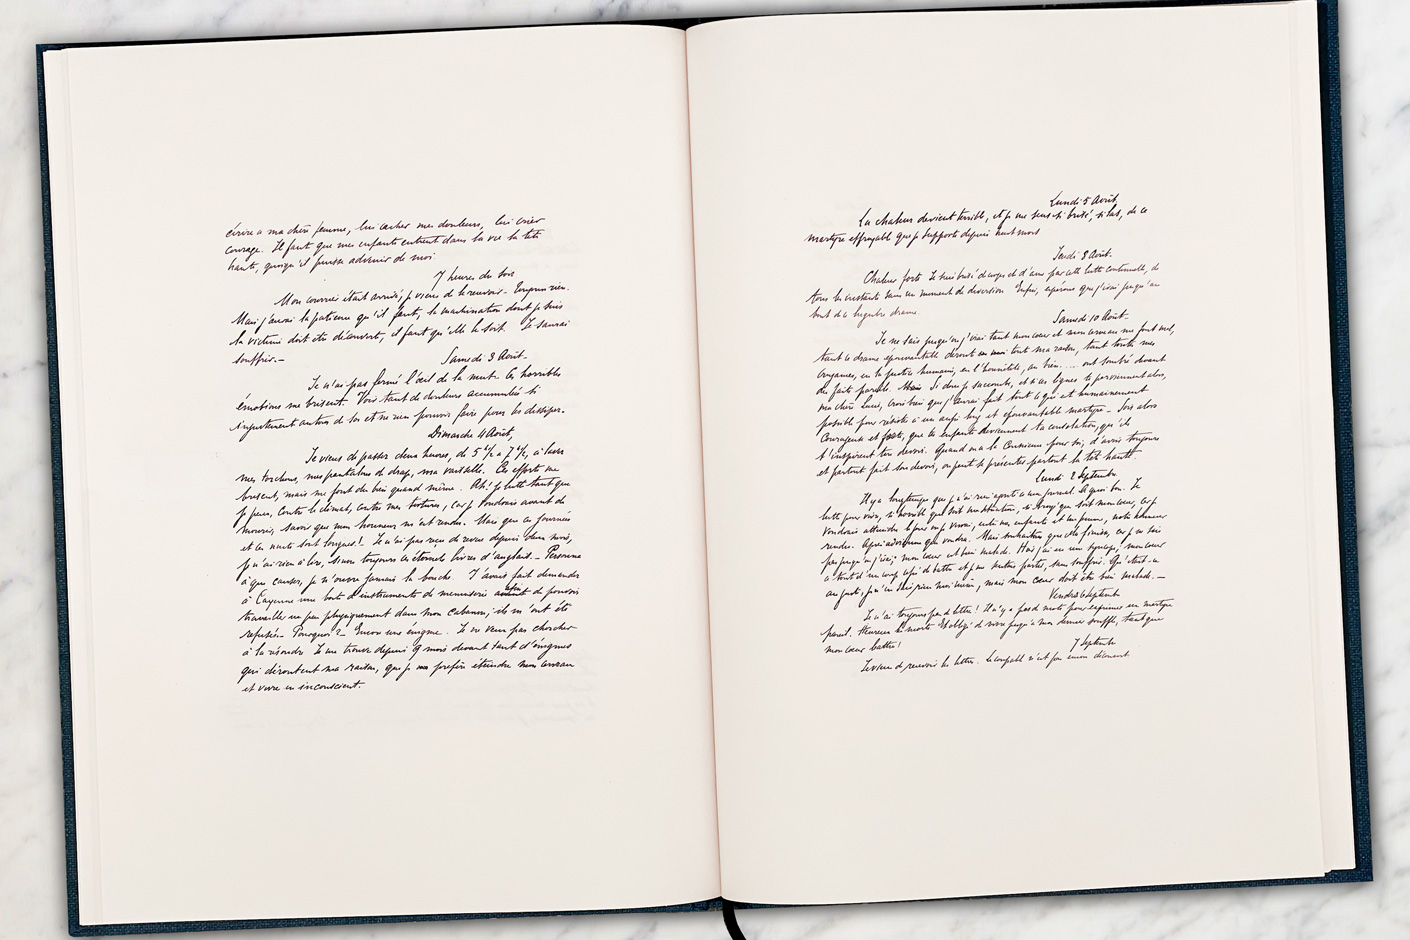 écrire à ma chère femme, lui cacher mes douleurs, lui crier
courage. Il faut que mes enfants entrent dans la vie la tête
haute, quoiqu'il puisse advenir de moi.
7 heures du soir
Mon courrier étant arrivé, je viens de le recevoir. Toujours rien.
Mais j'aurai la patience qu'il faut, la machination dont je suis
la victime doit être découverte, il faut qu'elle le soit. Je saurai
souffrir. —
Samedi 3 Août. —
Je n'ai pas fermé l'œil de la nuit. Ces horribles
émotions me brisent. Voir tant de douleurs accumulées si
injustement autour de soi et ne rien pouvoir faire pour les dissiper.
Dimanche 4 Août,
Je viens de passer deux heures, de 5 ½ à 7 ½, à laver
mes torchons, mes pantalons de drap, ma vaisselle. Ces efforts me
brisent, mais me font du bien quand même. Ah! Je lutte tant que
je peux, contre le climat, contre mes tortures, car je voudrais avant de
mourir, savoir que mon honneur m'est rendu. Mais que ces journées
et ces nuits sont longues! — Je n'ai pas reçu de revues depuis deux mois,
je n'ai rien à lire, sinon toujours ces éternels livres d'anglais. — Personne
à qui causer, je n'ouvre jamais la bouche. J'avais fait demander
à Cayenne une boîte d'instruments de menuiserie afin de pouvoir
travailler un peu physiquement dans mon cabanon; ils m'ont été
refusés. — Pourquoi? — Encore une énigme. Je ne veux pas chercher
à la résoudre. Je me trouve depuis 9 mois devant tant d'énigmes
qui déroutent ma raison, que je préfère éteindre mon cerveau
et vivre en inconscient.
Lundi 5 Août,
La chaleur devient terrible, et je me sens si brisé, si las, de ce
martyre effroyable que je supporte depuis huit mois
Jeudi 8 Août.
Chaleur forte. Je suis brisé de corps et d'âme par cette lutte continuelle, de
tous les instants sans un moment de Enfin, espérons que j'irai jusqu'au
bout de ce lugubre drame.
Samedi 10 Août. —
Je ne sais jusqu'où j'irai tant mon cœur et mon cerveau me font mal,
tant ce drame épouvantable déroute tout ma raison, tant toutes mes
croyances, en la justice humaine, en l'honnêteté, au bien.... ont sombré devant
de faits pareils. Si donc je succombe, et si ces lignes te parviennent alors,
ma chère Lucie, crois bien que j'aurai fait tout ce qui est humainement
possible pour résister à un aussi long et épouvantable martyre. — Sois alors
courageuse et forte, que tes enfants deviennent ta consolation, qu'ils
t'inspirent ton devoir. Quand on a la conscience pour soi, d'avoir toujours
et partout fait son devoir, on peut se présenter partout la tête haute.
Lundi 2 Septembre
Il y a longtemps que je n'ai rien ajouté à mon journal. À quoi bon. Je
lutte pour vivre, si horrible que soit ma situation, si broyé que soit mon cœur, car je
voudrais atteindre le jour où je verrai, entre mes enfants et ma femme, notre honneur
rendu. Mais souhaitons que cela finisse, car je ne sais
pas jusqu'où j'irai; mon cœur est bien malade. Hier j'ai eu une syncope, mon cœur
a tout d'un coup cessé de battre et je me sentais partir, sans souffrir. Qu'était-ce
au juste, je n'en sais rien moi-même, mais mon cœur doit être bien malade. —
Vendredi 6 Septembre
Je n'ai toujours pas de lettres! Il n'y a pas de mots pour exprimer un martyre
pareil. Heureux les morts. Et obligé de vivre jusqu'à mon dernier souffle, tant que
mon cœur battra!
7 Septembre
Je viens de recevoir les lettres. Le coupable n'est pas encore découvert.